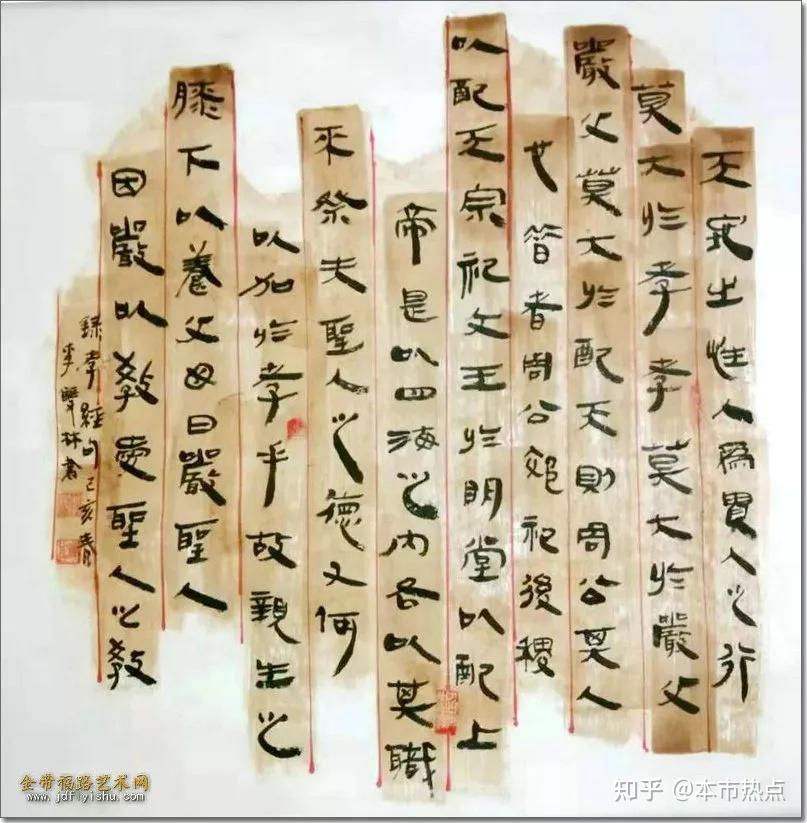 天地之性人為貴人之行
莫大於孝孝莫大於嚴父
嚴父莫大於配天則周公其人
也昔者周公郊祀後稷
以配天宗祀文王於明堂以配上
帝是以四海之內各以其職
來祭夫聖人之德又何
以加於孝乎故親生之
膝下以養父母日嚴聖人
因嚴以教愛聖人之教
錄孝經句己亥春
李雙林書
金带福路艺术网
www.jdflyishu.com
知乎 @本市热点